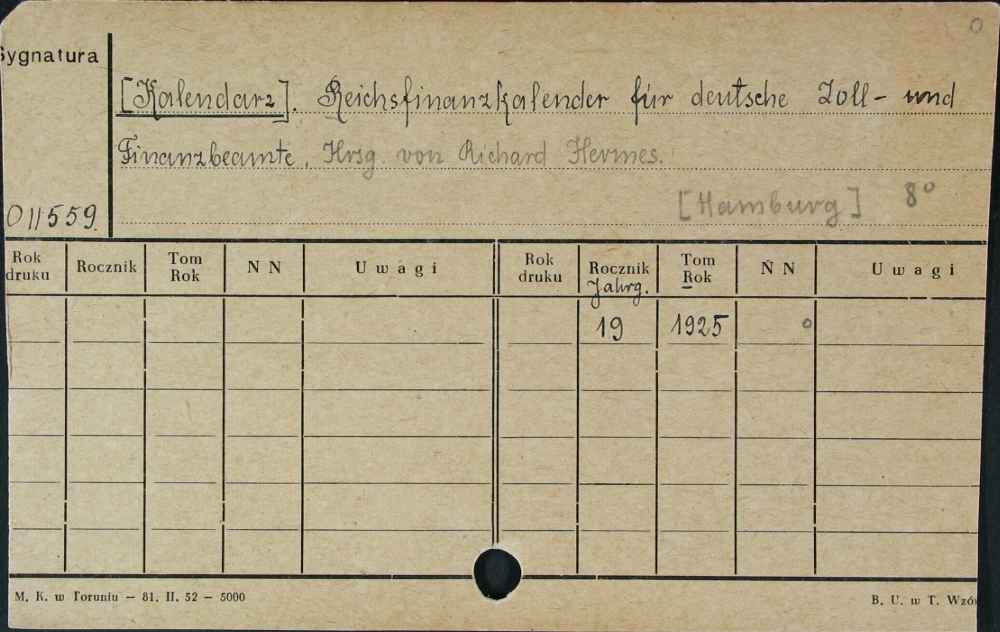 Sygnatura
[Kalendarz]. Reichsfinanzkalender für deutsche Zoll- und
Finanzbeamte, Hrsg. von Richard Hermes.
[Hamburg] 8°
011559.
Rok druku Rocznik Tom Rok N N Uwagi Rok druku Rocznik Jahrg. Tom Rok N N Uwagi
19 1925
M. K. w Toruniu — 81. II. 52 — 5000 B. U. w T. Wzó